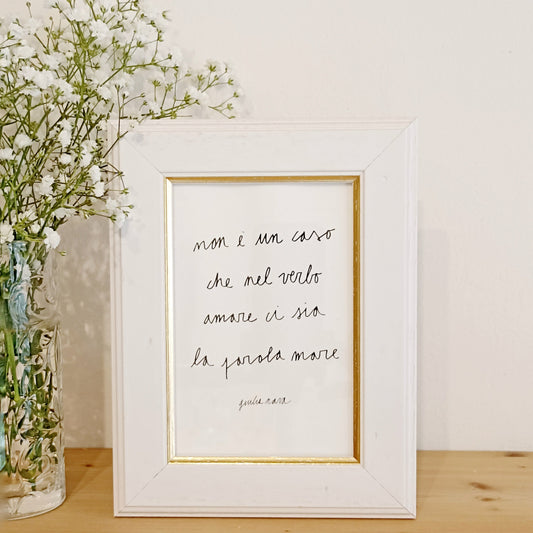 non è un caso
che nel verbo
amare ci sia
la parola mare
giulia nara